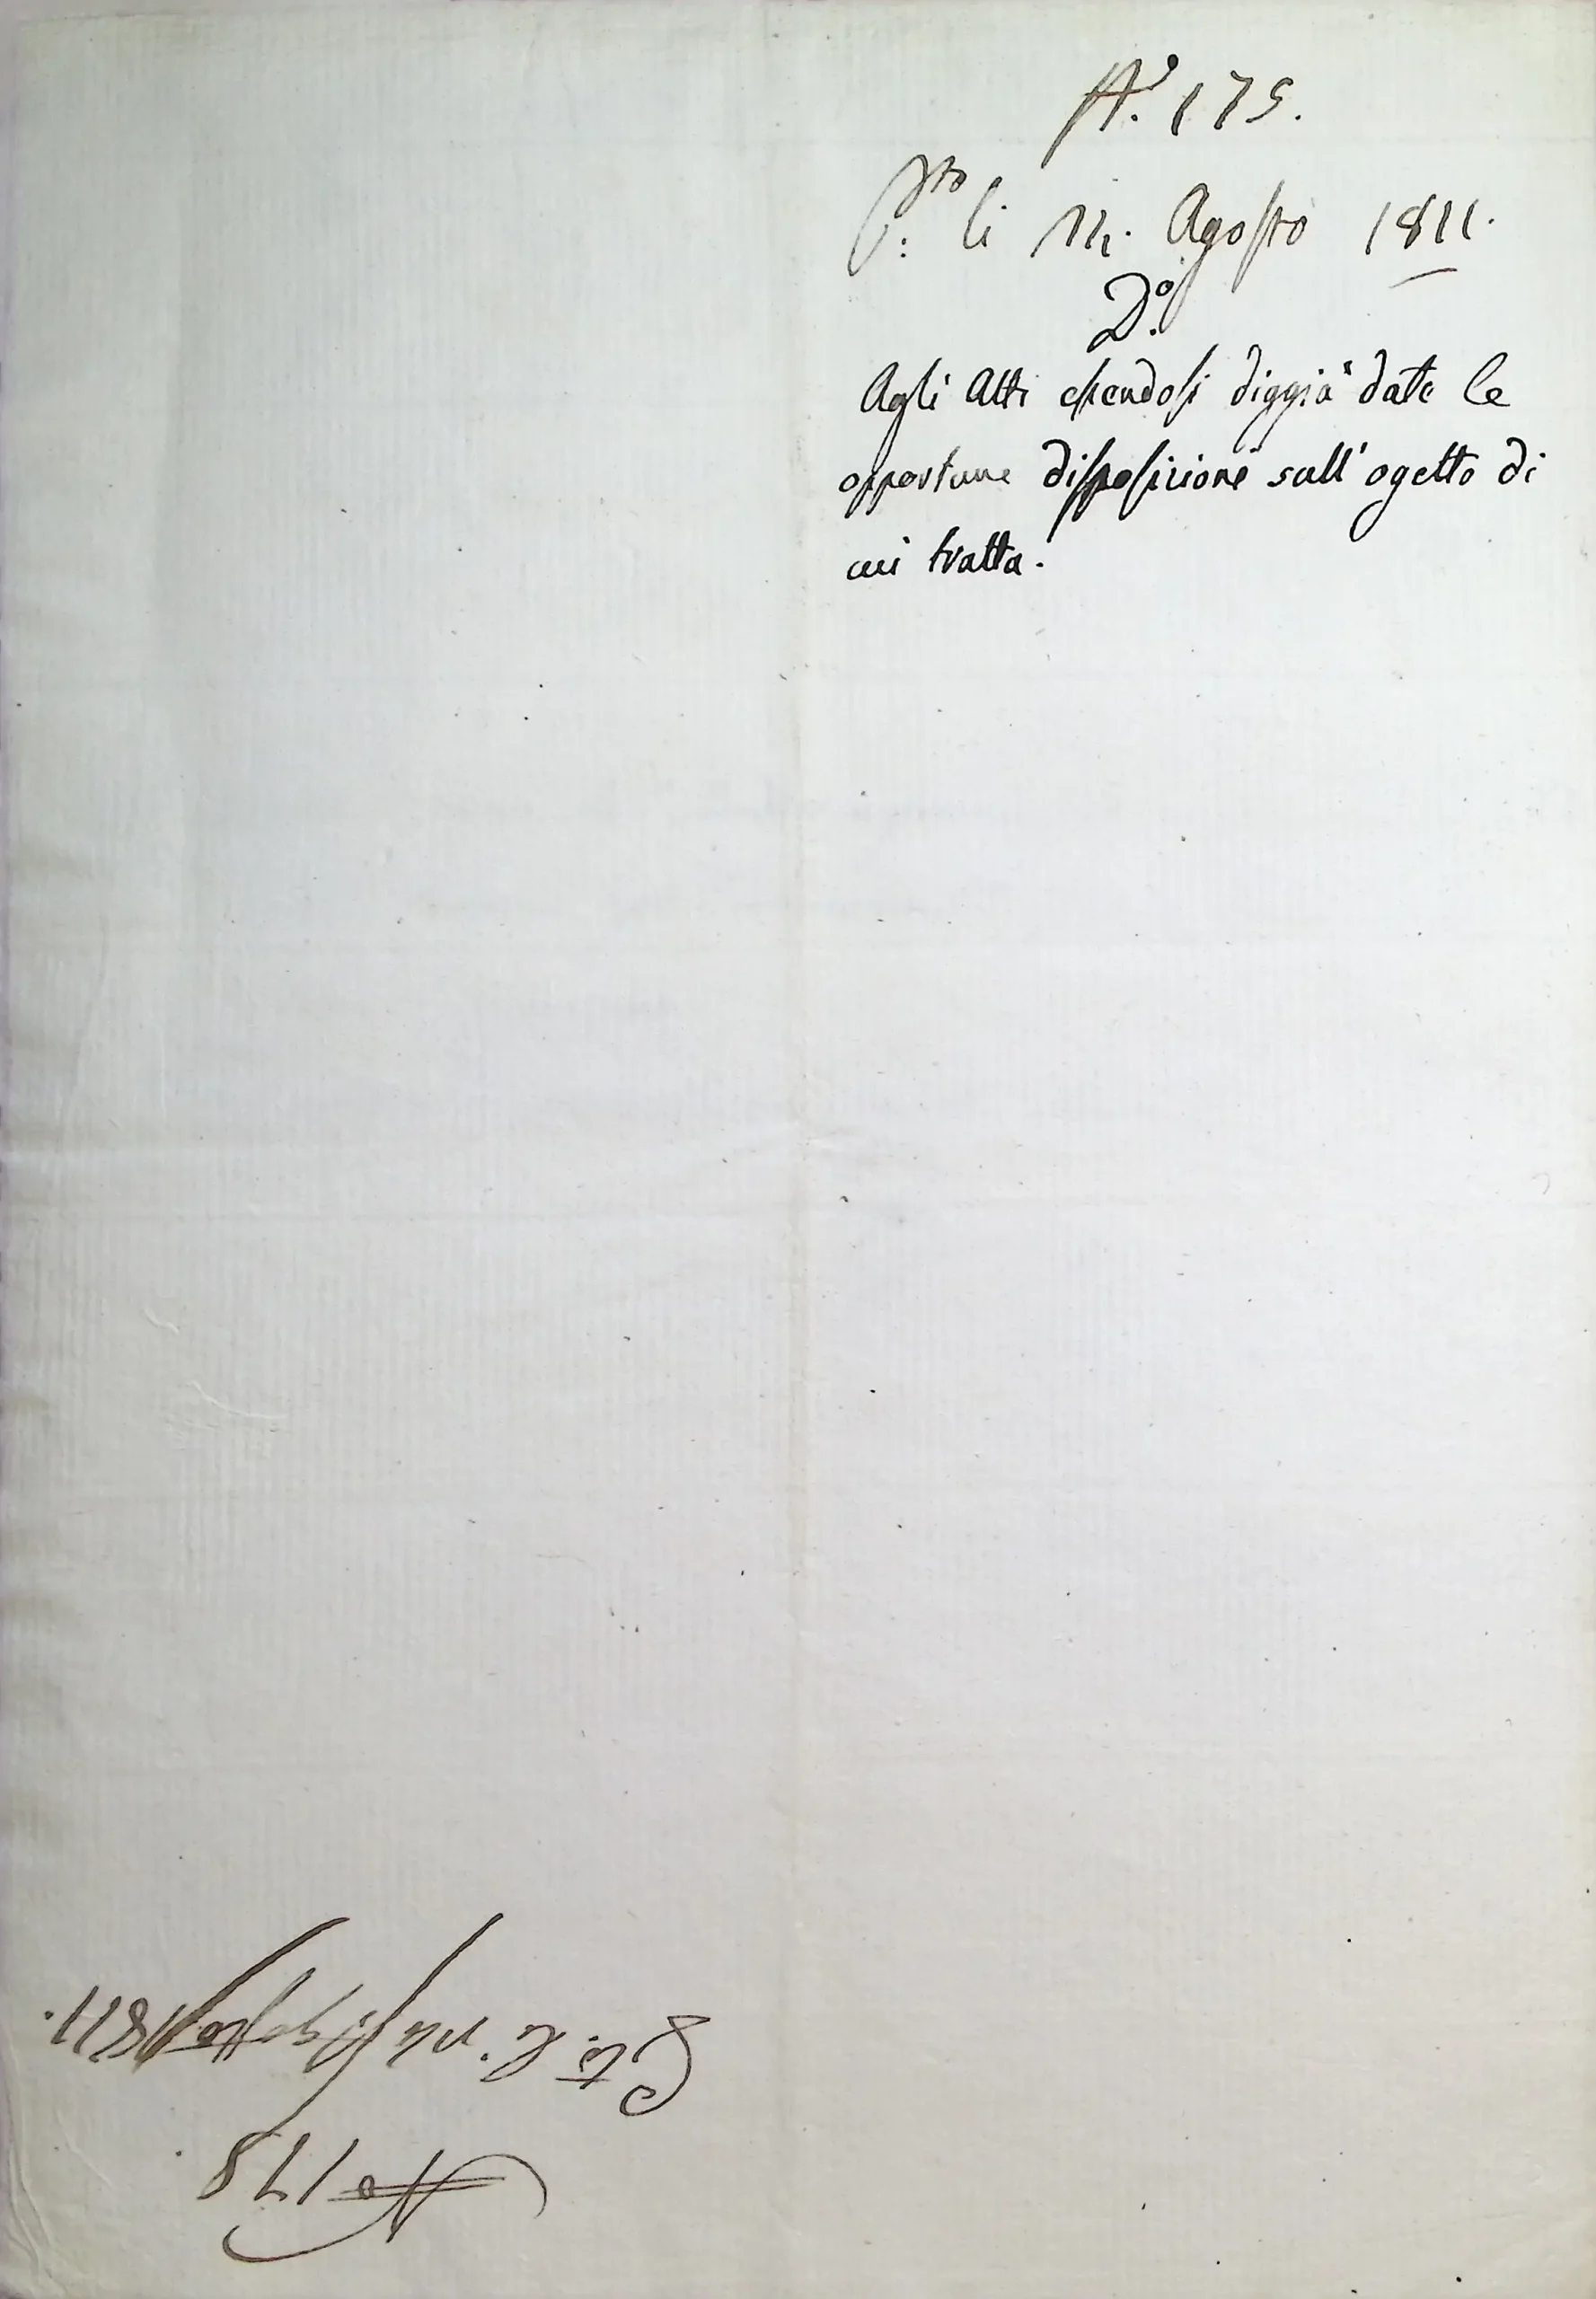 N.° 175.
P.to li 14. Agosto 1811.
D.°
Agli Atti essendosi diggià date le
opportune disposizioni sull' ogetto di
cui tratta.
N.° 178
Agosto 1811.